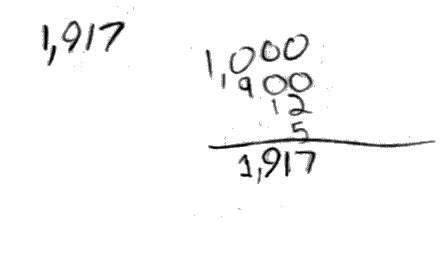 1,917
1,000
900
12
5
1,917